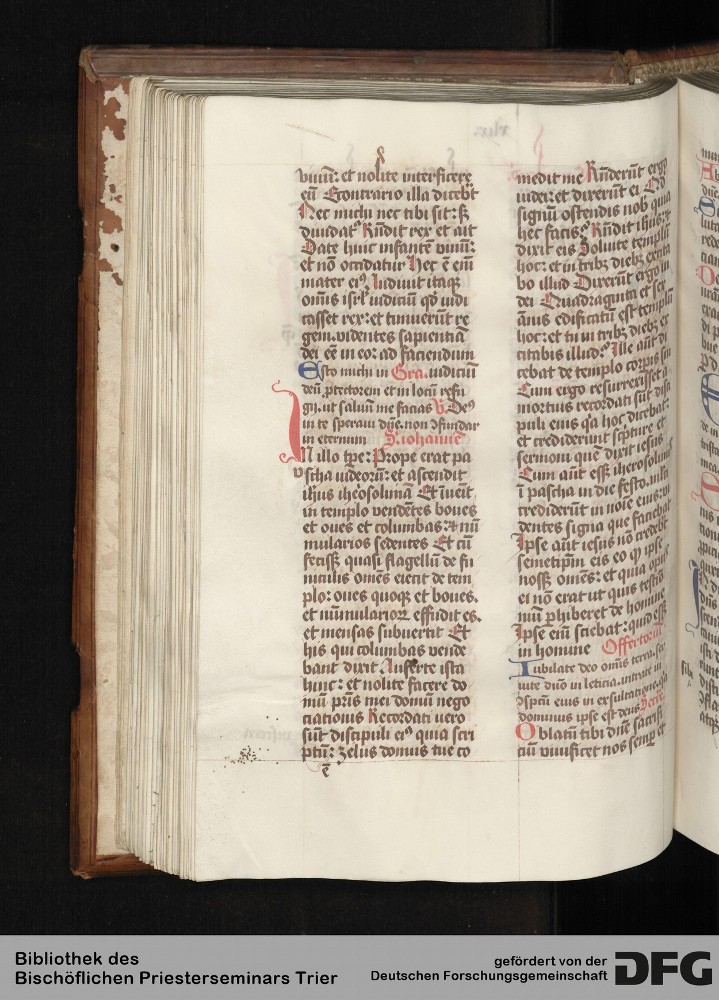 viuū: et nolite interficere
eū Econtrario illa diceb̄t
Nec michi nec tibi sit: sʒ
diuidatᷣ Rn̄dit rex et ait
Date huic infantē viuū:
et nō occidatur hec ē eiꝰ
mater eiꝰ Audiuit itaqꝫ
om̄is isrl̓ iudiciū qd̓ iudi
casset rex: et timuerūt re
gem. videntes sapientiā
dei eē in eo: ad faciendum
Esto michi in Gra. iudiciū
deū ꝓtectorem et in locū refu
gij. ut saluū me facias V. Deꝰ
in te speraui dn̄e. non ↄfundar
in eternum S. iohannē
In illo tp̄e: Prope erat pa
scha iudeorū: et ascendit
ih̄us ih̓osolimā Et īueīt
in templo vendētes boues
et oues et columbas: ⁊ nū
mularios sedentes Et cū
fecissꝫ quasi flagellū de fu
niculis om̄es eiecit de tem
plo: oues quoqꝫ et boues.
et nūmularioꝝ effudit es.
et mensas subuertit Et
his qui columbas vende
bant dixit Auferte ista
hinc: et nolite facere do
mū pr̄is mei domū nego
ciationis Recordati uero
sūt discipuli eiꝰ quia scri
ptū: zelus domus tue co
ē
medit me Rn̄derūt ergo
iudei: et dixerūt ei Qd̓
signū ostendis nob̓ quia
hec facis? Rn̄dit ih̄us: et
dixit eis Soluite templū
hoc: et in tribꝫ diebꝫ excita
bo illud Dixerūt ergo iu
dei Quadraginta et sex
ānis edificatū est templū
hoc: et tu in tribꝫ diebꝫ ex
citabis illud? Ille aūt di
cebat de templo corpꝑis sui
Cum ergo resurrexisset a
mortuis recordati sūt disci
puli eius qa hoc dicebat:
et crediderunt scpture et
sermoni quē dixit iesus
Cum aūt essꝫ iherosolimis
ī pascha in die festo. m̄lti
crediderūt in noīe eius: vi
dentes signa que faciebat
Ipse aūt iesus nō credebt̄
semetip̄m eis eo qꝫ ipse
nossꝫ omēs: et quia opus
ei nō erat ut quis testio
niū phiberet de homine
Ipse eiū sciebat: quid essꝫ
in homine Offertoriū
Iubilate deo om̄is terra. ser
uite dn̄o in leticia. intrate in
ↄspc̄u eius in exsultatione. qa
dominus ipse est deus Secre.
Oblatū tibi dn̄e sacrifi
ciū viuificet nos semꝑ et
Bibliothek des
Bischöflichen Priesterseminars Trier
gefördert von der
Deutschen Forschungsgemeinschaft
DFG